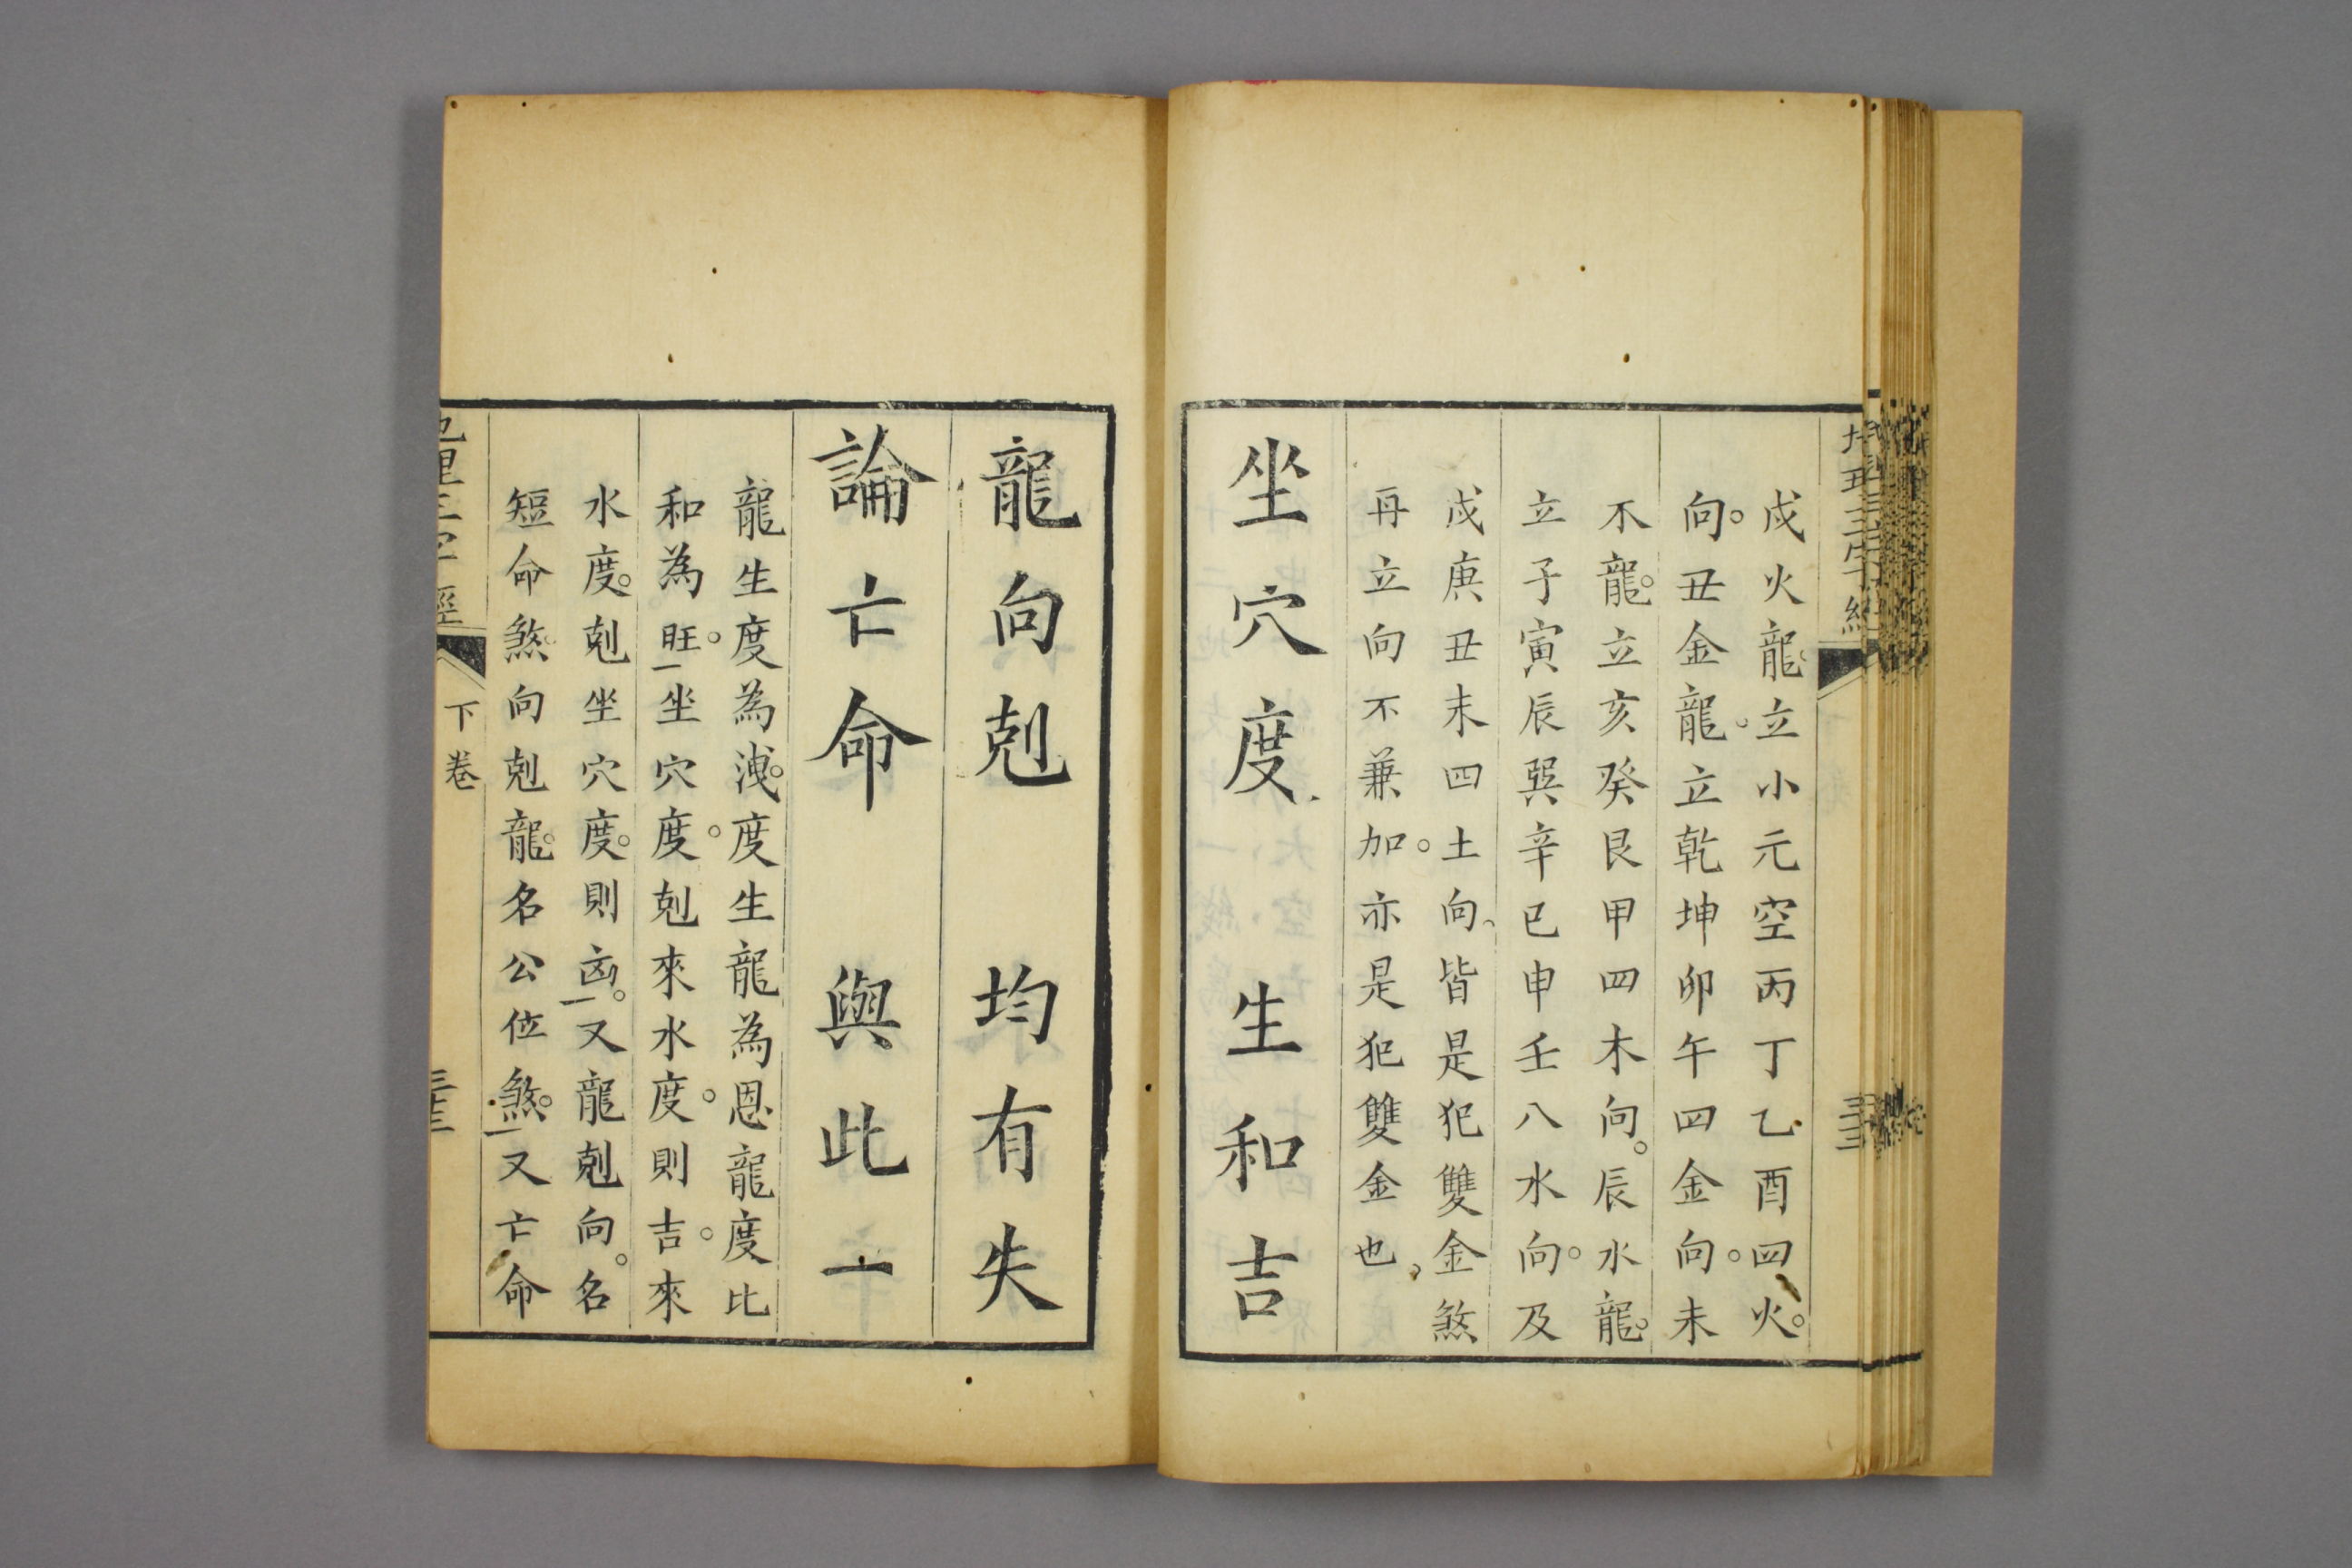 地理三字經
戌火龍立小元空丙丁乙酉四火。
向。丑金龍。立乾坤卯午四金向。未
不龍。立亥癸艮甲四木向。辰水龍。
立子寅辰巽辛巳申壬八水向。及
戌庚丑未四土向、皆是犯雙金煞
再立向不兼加。亦是犯雙金也。
坐穴度 生和吉
龍向剋 均有失
論亡命 與此一
龍生度為洩。度生龍為恩龍度比
和為旺。坐穴度。剋來水度。則吉。來
水度。剋坐穴度。則凶。又龍剋向。名
短命煞。向剋龍。名公位煞。又亡命
地理三字經
下卷